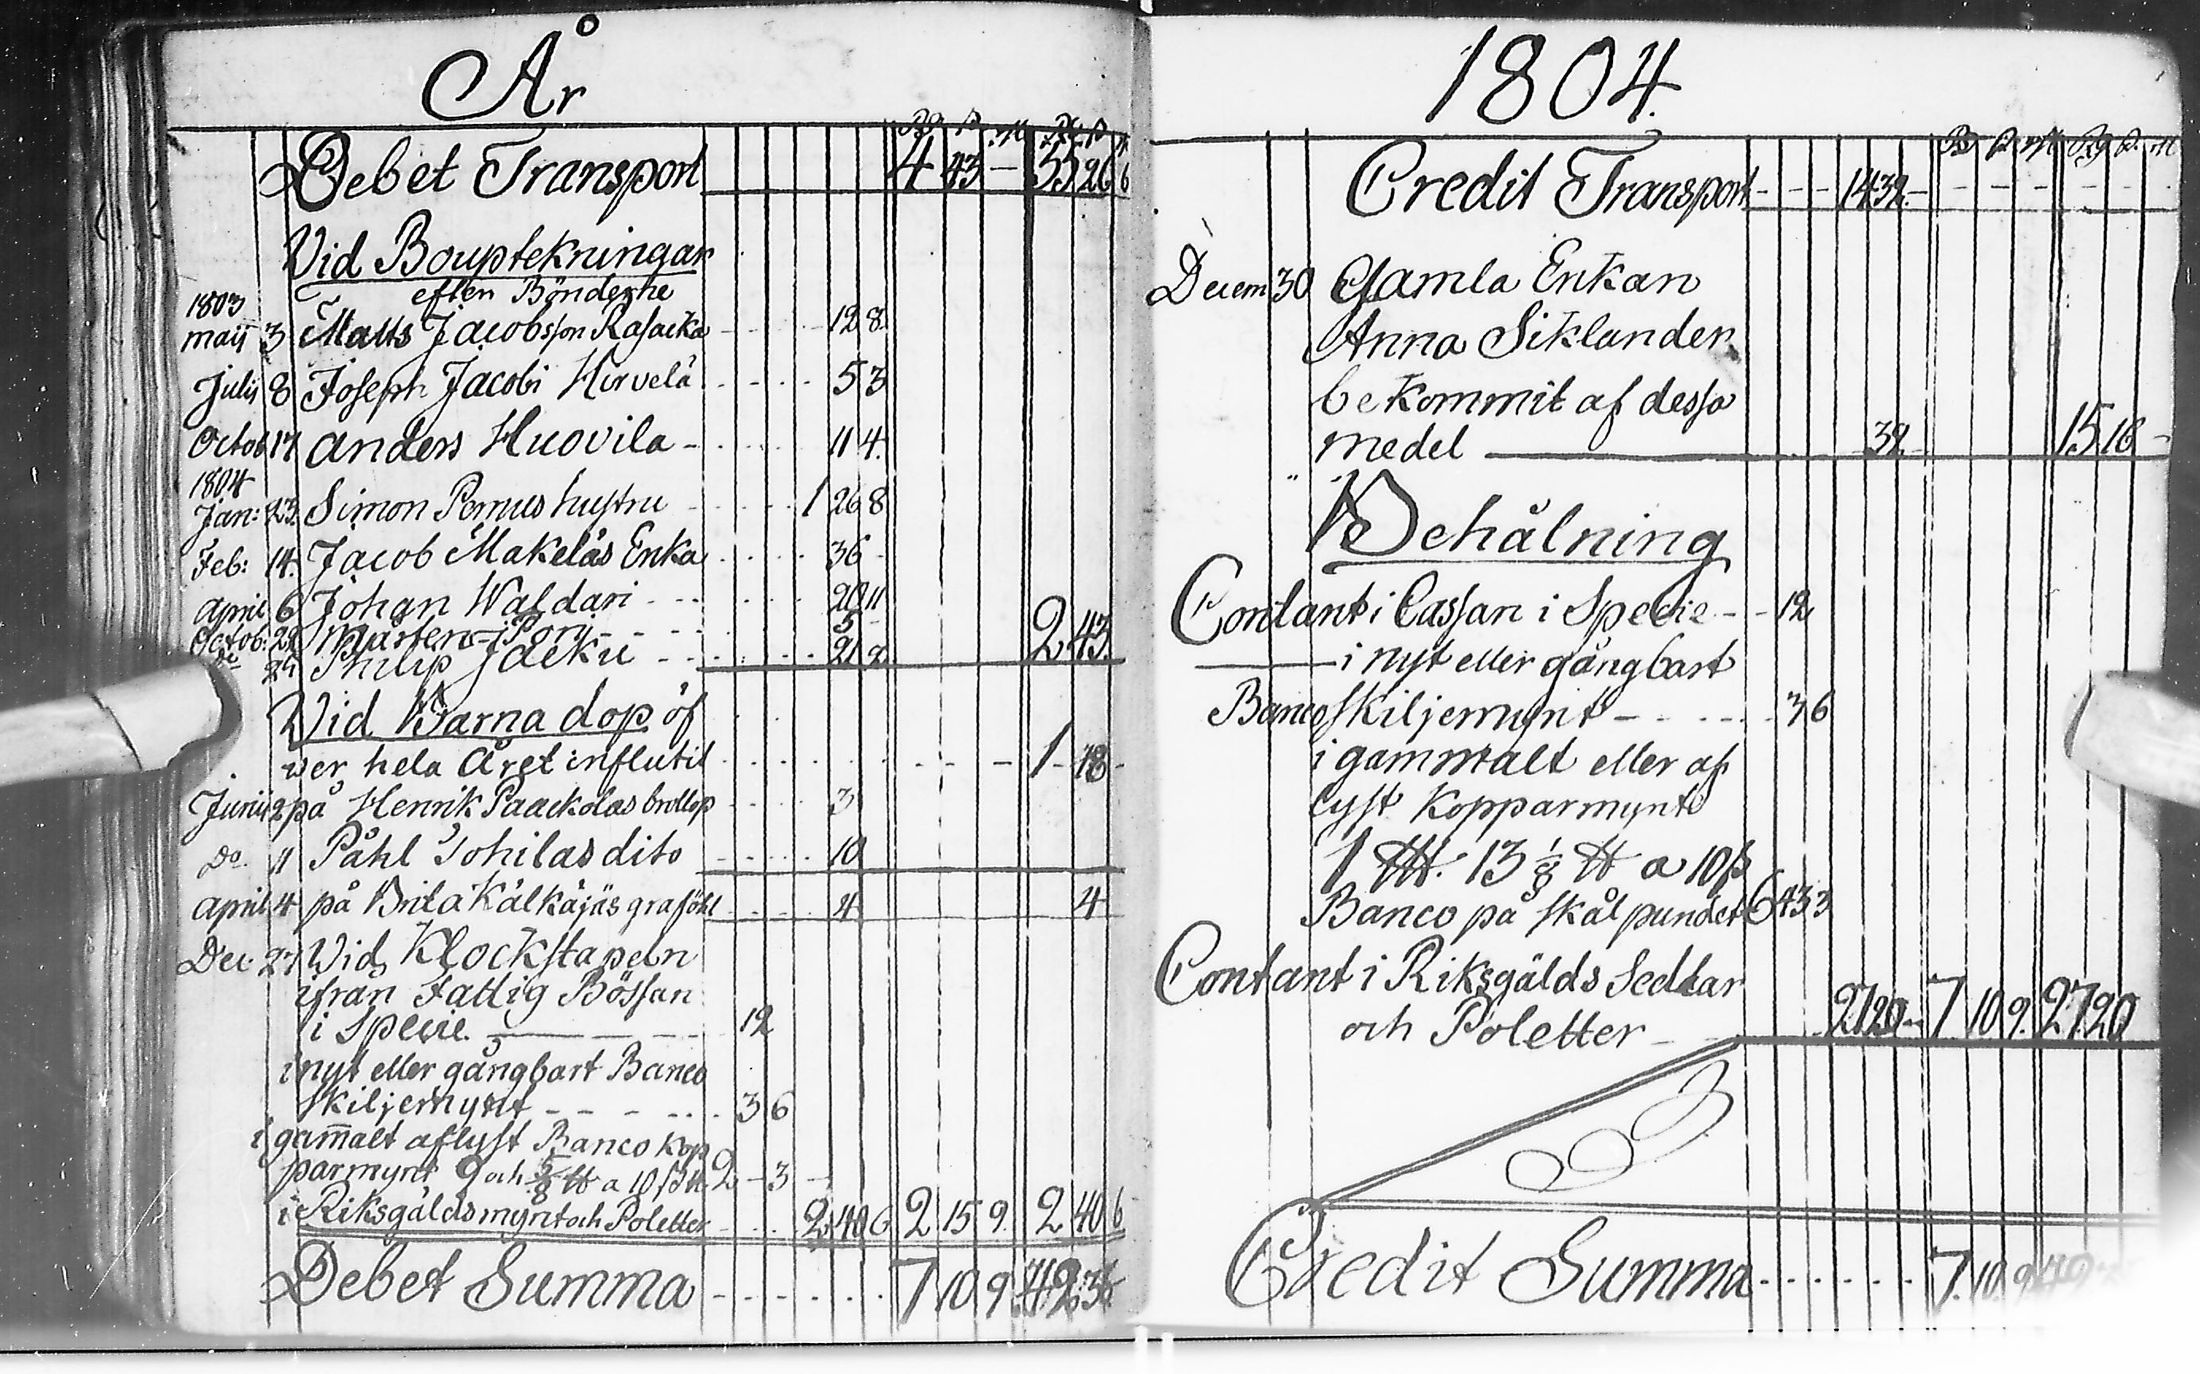 År
Debet Transport 4 43 - 35 26 6
Vid Bouptekningar
efter Bönderne
1803
maij 3 Matts Jacobsson Rasacka - - - 12 8
Julij 8 Joseph Jacobi Hirvelä - - - 5 3
Octob 17 anders Huovila - - - 11 4
1804
Jan: 23 Simon Pernus hustru - - - 1 26 8
Feb: 14. Jacob Makeläs Enka - - - 36 -
April 6 Johan Waldari - - - 20 11
Octob: 22 Mårten Pori - - - 5 -
Do 24 Philip Jacku - - - 21 2 2 43
Vid Barna dop öf
wer hela Året influtit - - - 1 18 -
Junii 2 på Henrik Paackolas bröllop - - - 3
Do. 11 Påhl Tohilas dito - - - 10
April 4 på Brita Kälkäjäs graföhl - - - 4 4
Dec. 27 Vid Klockstapeln
ifrån Fattig Bössan
i Specie - - - 12
i nyt eller gångbart Banco
Skiljemynt - - - 3 6
i gam̅alt aflyst Banco kop
parmynt 9 och 5/8 ℔ a 10 ß 2 - 3
i Riksgälds mynt och Poletter - - - 2 40 6 2 15 9 2 40 6
Debet Summa - - - 7 10 9 42 36
1804.
Credit Transport - - - 14 32 -
Decem 30 Gamla Enkan
Anna Siklander
bekommit af dessa
medel 32 - 15 16 -
Behålning
Contant i Cassan i Specie - - 12
i nyt eller gångbart
Banco Skiljemynt - - - 3 6
i gammalt eller af
lyst Kopparmynt
1 L℔. 13 1/8 ℔ a 10 ß
Banco på skålpundet 6 43 3
Contant i Riksgälds Sedlar
och Poletter - - 27 20 - 7 10 9. 27 20
Credit Summa - - - 7. 10. 9